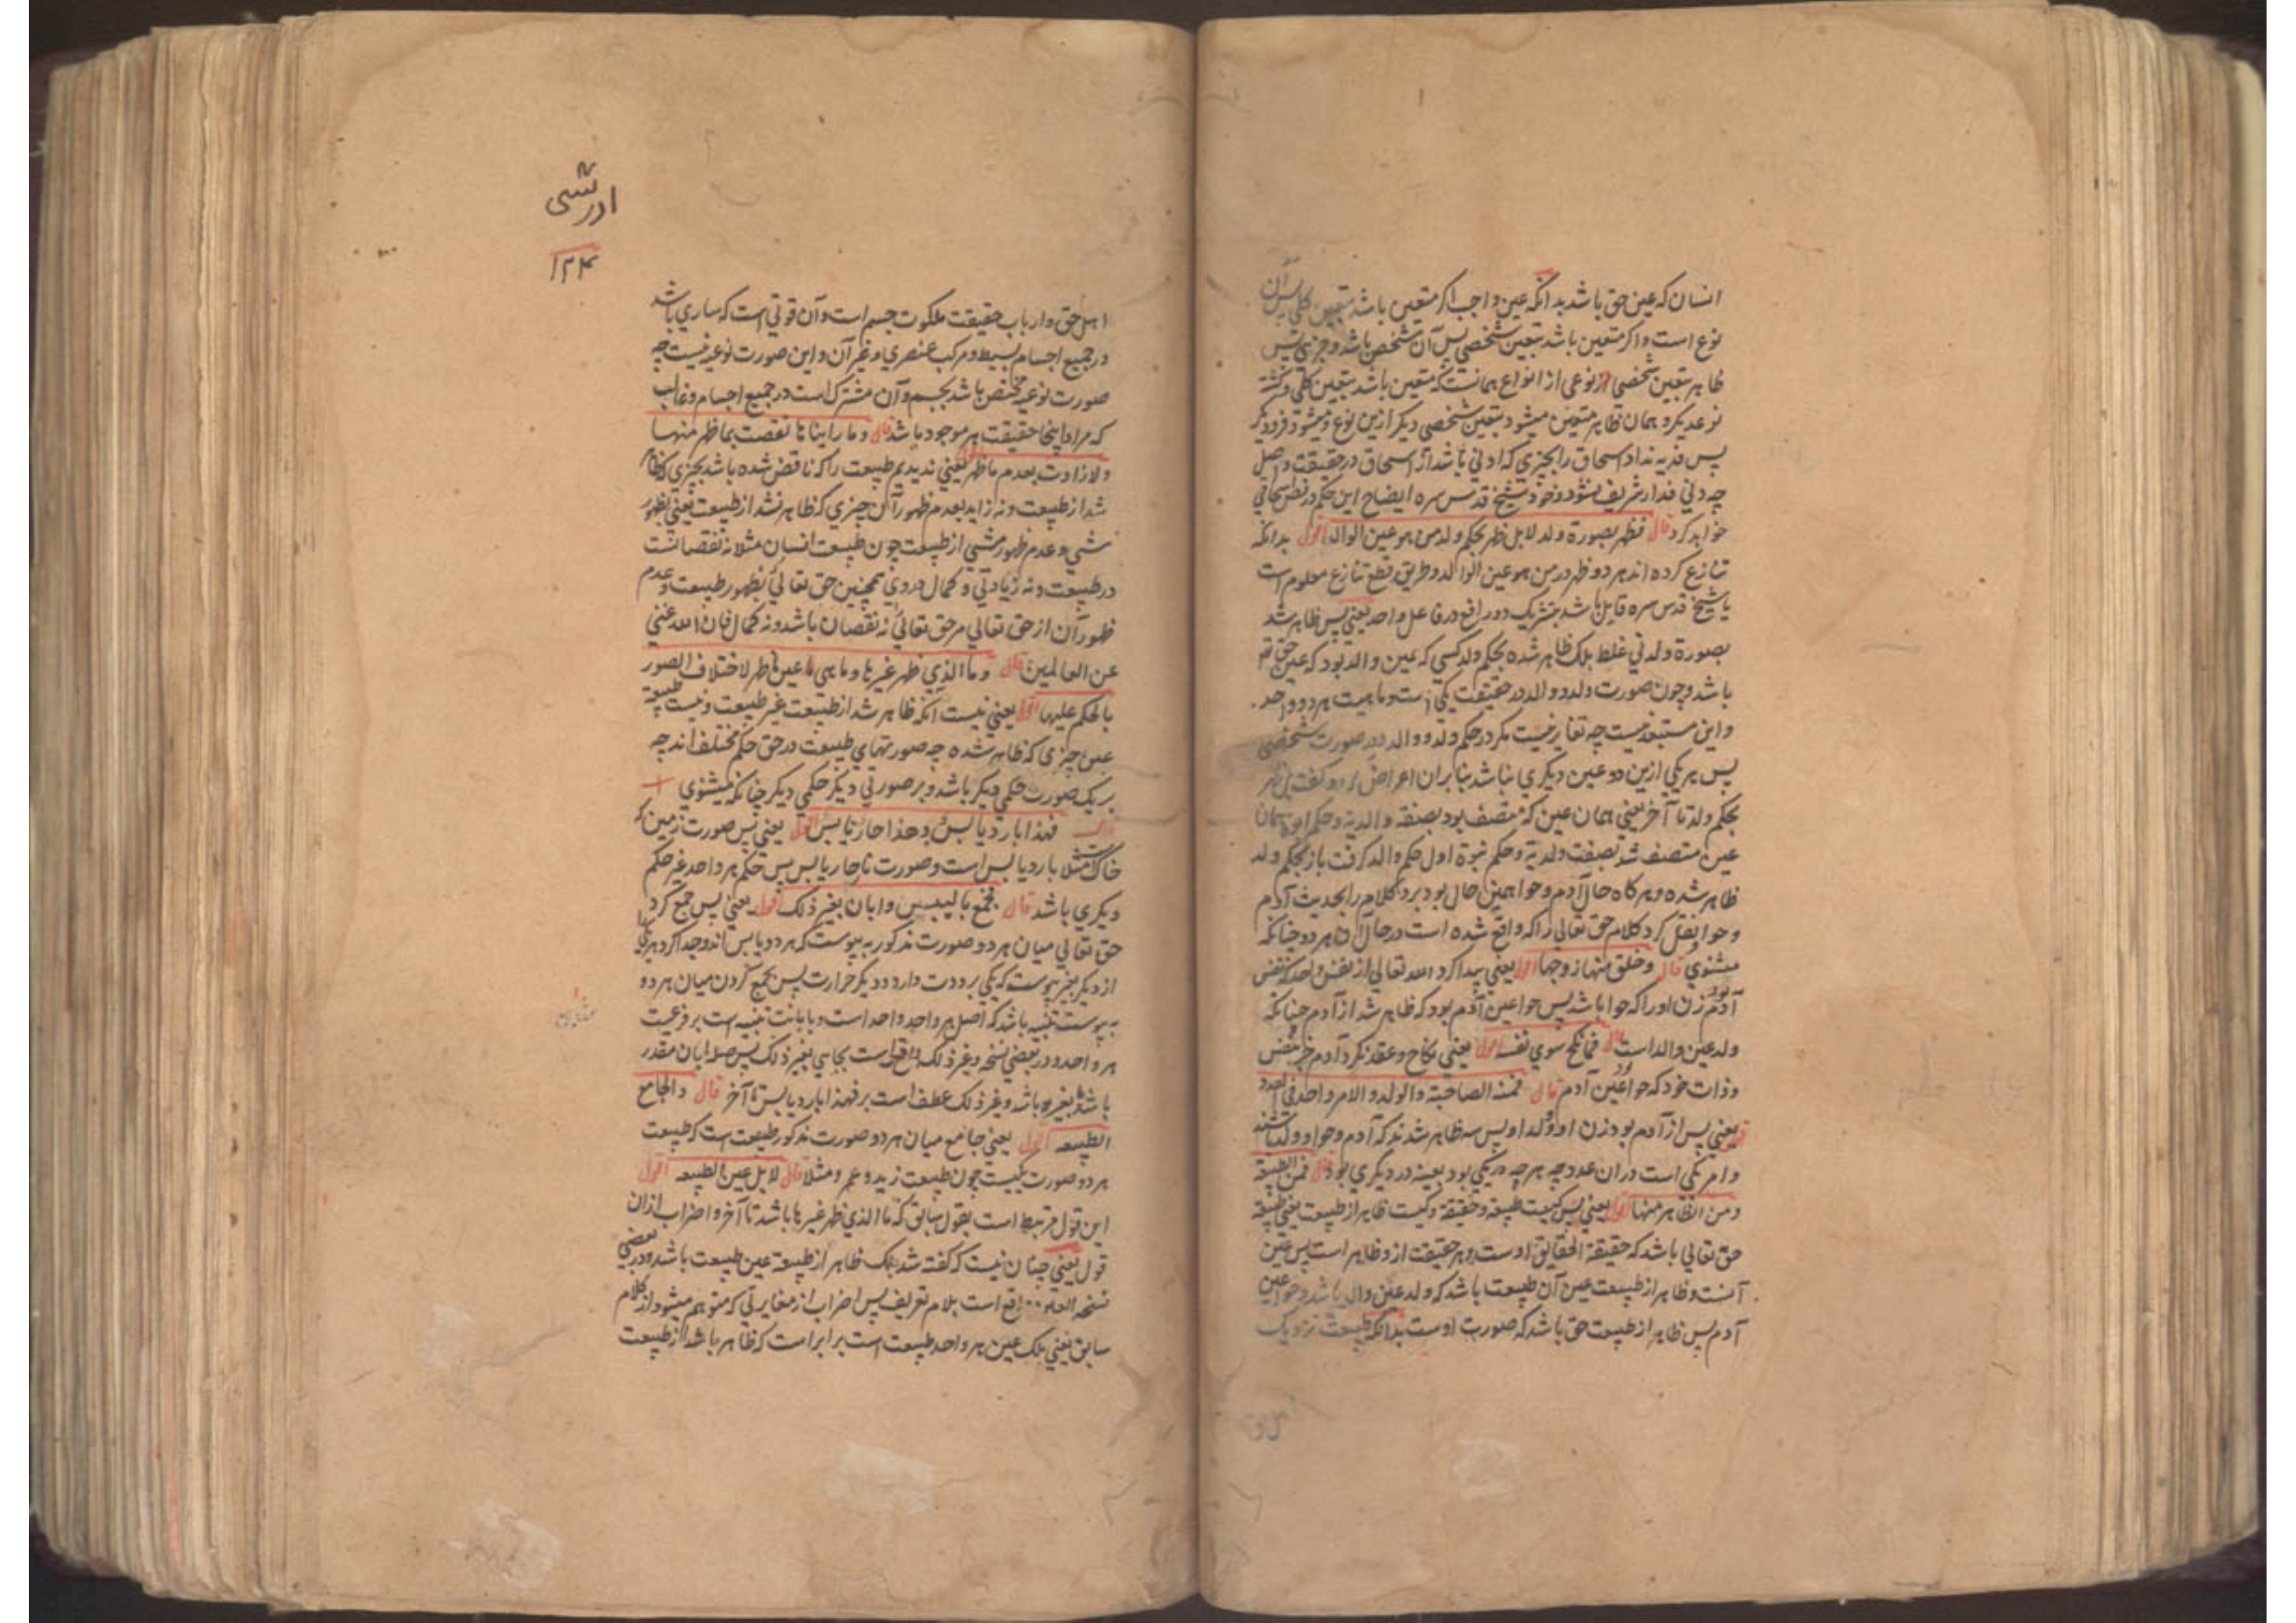 انسان که عین حق باشد بدانکه عین واجب اکر متعین باشد بتعین کلی پس آن
نوع است و اکر متعین باشد بتعین شخصی پس آن شخص باشد و جزیی پس
ظاهر بتعین شخصی از نوعی از انواع همانست که متعین باشد بتعین کلی وکشته
نوعدیکر و همان ظاهر متعین میشود بتعین شخصی دیکر ازین نوع و میشود فرد دیکر
پس فدیه نداد اسحاق را بچیزی که ادنی باشد از اسحاق در حقیقت و اصل
چه دنی فدا شریف نشود و خود شیخ قدس سره ایضاح این حکم در فص اسحاقی
خواهد کرد قال فظهر بصورة ولد لابل ظهر بحکم ولد من هو عین الوالد اقول بدانکه
تنازع کرده اند هر دو ظهر در من هو عین الوالد و طریق قطع تنازع معلوم است
یا شیخ قدس سره قایل باشد بتشریک دو رافع در فاعل واحد یعنی پس ظاهر شد
بصورة ولد نی غلط بلکه ظاهر شده بحکم ولد کسی که عین والد بود که عین حق
باشد و چون صورت ولد و والد در حقیقت یکی است و ماهیت هر دو واحد
و این مستبعد نیست چه تغایر نیست مکر در حکم ولد و والد و در صورت شخصی
پس هر یکی ازین دو عین دیکری نباشد بنابران اعراض کرد و کفت بل ظهر
بحکم ولد تا آخر یعنی همان عین که متصف بود بصفة والدیة و حکم ابوة همان
عین متصف شد بصفت ولدیة و حکم نبوة اول حکم والد کرفت باز بحکم ولد
ظاهر شده و هر کاه حال آدم و حوا همین حال بود برد کلام را بحدیث آدم
و حوا و نقل کرد کلام حق تعالی را که واقع شده است در حال آن هر دو چنانکه
میشنوی قال وخلق منها زوجها اقول یعنی پیدا کرد الله تعالی از نفس واحد که نفس
آدم بود زن او را که حوا باشد پس حوا عین آدم بود که ظاهر شد از آدم چنانکه
ولد عین والد است قال فما نکح سوی نفسه اقول یعنی نکاح و عقد نکرد آدم جز نفس
و ذات خود که حوا عین آدم بود قال فمنه الصاحبة والولد والامر واحد فی العدد
اقول یعنی پس از آدم بود زن او و ولد او پس سه ظاهر شدند که آدم و حوا و ولد باشند
و امر یکی است در ان عدد چه هر چه در یکی بود بعینه در دیکری بود قال فمن الطبیعة
ومن الظاهر منها اقول یعنی پس کیست طبیعة و حقیقة و کیست ظاهر از طبیعت یعنی طبیعة
حق تعالی باشد که حقیقة الحقایق اوست و هر حقیقت ازو ظاهر است پس عین
آنست و ظاهر از طبیعت عین آن طبیعت باشد که ولد عین والد باشد و حوا عین
آدم پس ظاهر از طبیعت حق باشد که صورت اوست بدانکه طبیعت نزدیک
ادریسی
۱۲۴
اهل حق و ارباب حقیقت ملکوت جسم است و آن قوتی است که ساری باشد
در جمیع اجسام بسیط و مرکب عنصری و غیر آن و این صورت نوعیه نیست چه
صورت نوعیه مختص باشد بجسم و آن مشترک است در جمیع اجسام و غالب
که مراد اینجا حقیقت هر موجود باشد قال وما رایناها نقصت بما ظهر منها
ولا زادت بعدم ما ظهر اقول یعنی ندیدیم طبیعت را که ناقص شده باشد بچیزی که ظاهر
شد از طبیعت و نه زاید بعدم ظهور آن چیزی که ظاهر نشد از طبیعت یعنی بظهور
شی و عدم ظهور شی از طبیعت چون طبیعت انسان مثلا نه نقصانست
در طبیعت و نه زیادتی و کمال در وی همچنین حق تعالی بظهور طبیعت و عدم
ظهور آن از حق تعالی مر حق تعالی نه نقصان باشد و نه کمال فان الله غنی
عن العالمین قال وما الذی ظهر غیرها وما هی عین ما ظهر لاختلاف الصور
بالحکم علیها اقول یعنی نیست انکه ظاهر شد از طبیعت غیر طبیعت و نیست طبیعة
عین چیزی که ظاهر شده چه صورتهای طبیعت در حق حکم مختلف اند چه
بر یک صورت حکمی دیکر باشد و بر صورتی دیکر حکمی دیکر چنانکه میشنوی
قال فهذا بارد یابس وهذا حار یابس اقول یعنی پس صورت زمین که
خاک است مثلا بارد یابس است و صورت نار حار یابس پس حکم هر واحد غیر حکم
دیکری باشد قال فجمع بالیبس وابان بغیر ذلک اقول یعنی پس جمع کرد
حق تعالی میان هر دو صورت مذکور به یبوست که هر دو یابس اند و جدا کرد هر یکی را
از دیکر بغیر یبوست که یکی برودت دارد و دیکر حرارت پس بجمع کردن میان هر دو
به یبوست تنبیه باشد که اصل هر واحد واحد است و بابانت تنبیه است بر فرعیت
هر واحد و در بعضی نسخه وغیر ذلک واقع است بجای بغیر ذلک پس صله ابان مقدر
باشد و بغیره باشد وغیر ذلک عطف است بر فهذا بارد یابس تا آخر قال والجامع
الطبیعه اقول یعنی جامع میان هر دو صورت مذکور طبیعت است که طبیعت
هر دو صورت یکیست چون طبیعت زید و عمرو مثلا قال لا بل عین الطبیعه اقول
این قول مرتبط است بقول سابق که ما الذی ظهر غیرها باشد تا آخر و اضراب از ان
قول یعنی چنان نیست که کفته شد بلکه ظاهر از طبیعة عین طبیعت باشد و در بعضی
نسخه واقع است بلام تعریف پس اضراب از مغایرتی که متوهم میشود از کلام
سابق یعنی بلکه عین هر واحد طبیعت است برابر است که ظاهر باشد از طبیعت